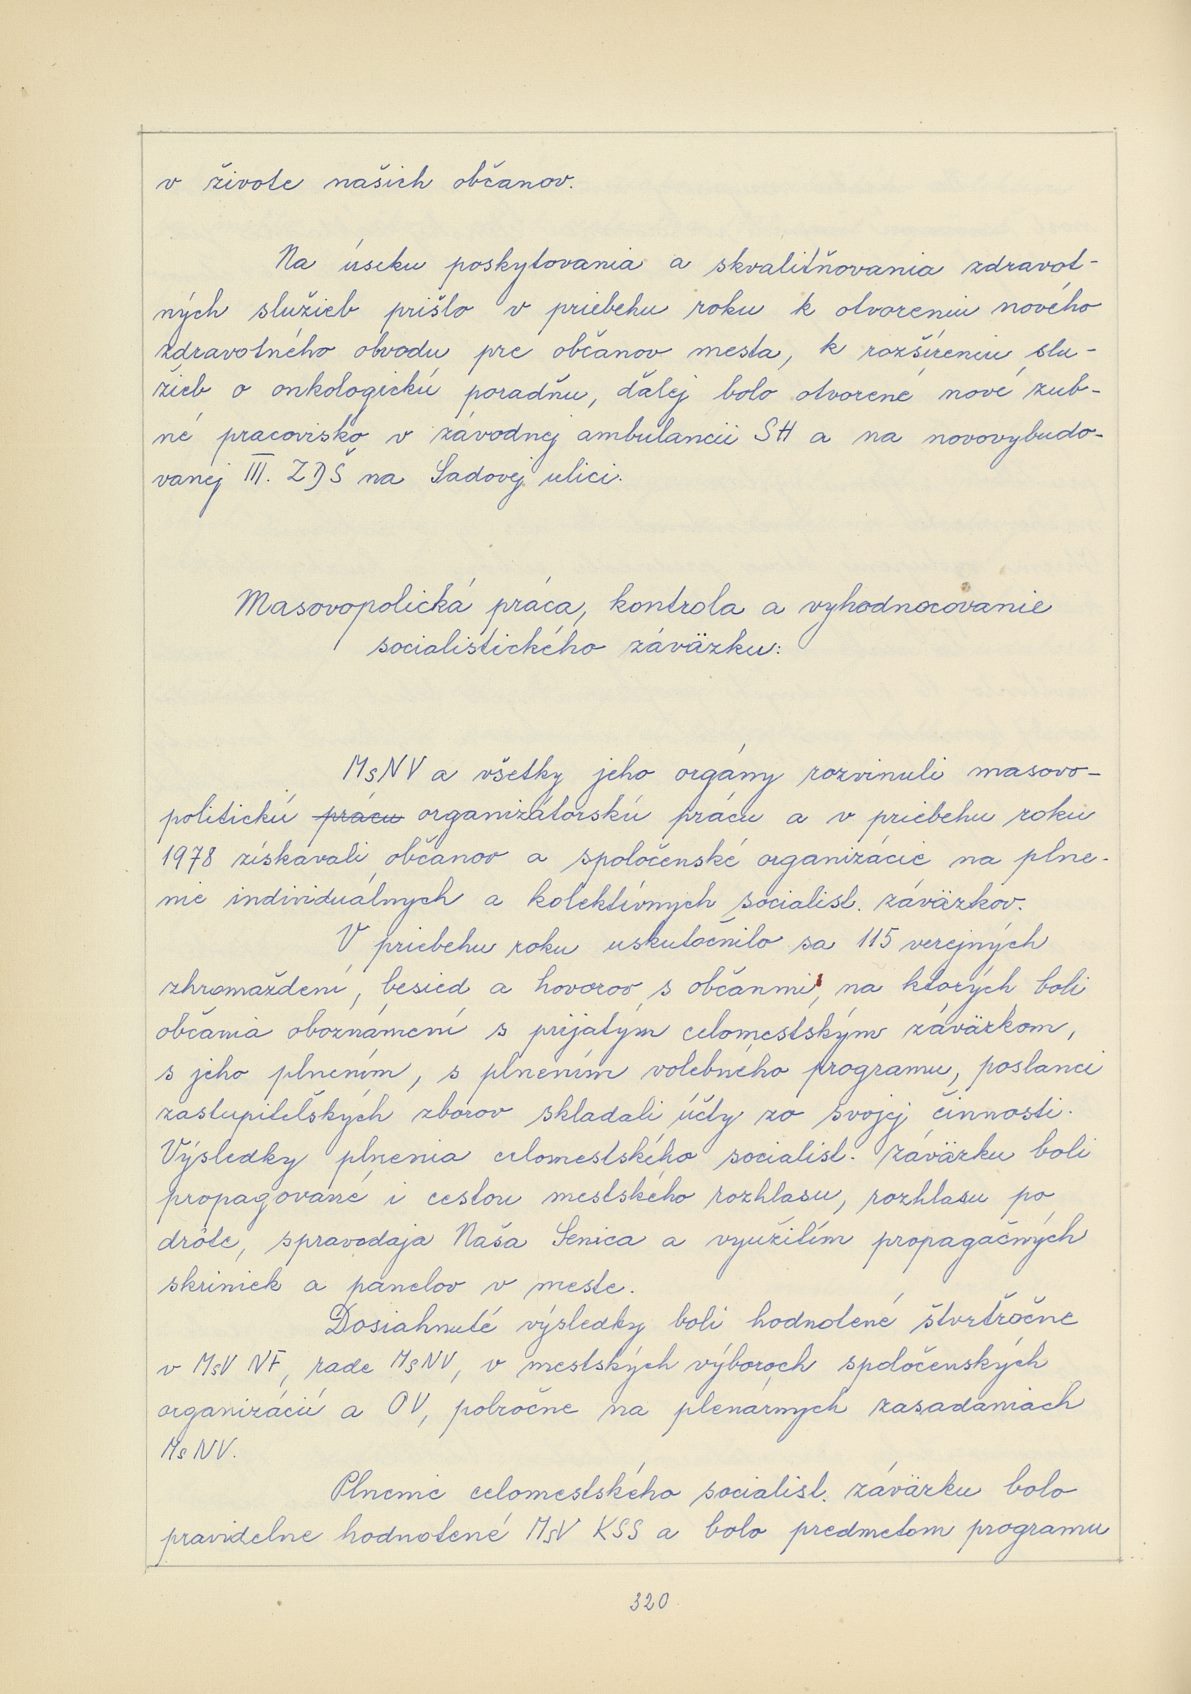 v živote našich občanov.
Na úseku poskytovania a skvalitňovania zdravot-
ných služieb prišlo v priebehu roku k otvoreniu nového
zdravotného obvodu pre občanov mesta, k rozšíreniu slu-
žieb o onkologickú poradňu, ďalej bolo otvorené nové zub-
né pracovisko v závodnej ambulancii SH a na novovybudo-
vanej III. ZDŠ na Sadovej ulici.
Masovopolická práca, kontrola a vyhodnocovanie
socialistického záväzku:
MsNV a všetky jeho orgány rozvinuli masovo-
politickú prácu organizátorskú prácu a v priebehu roku
1978 získavali občanov a spoločenské organizácie na plne-
nie individuálnych a kolektívnych socialist. záväzkov.
V priebehu roku uskutočnilo sa 115 verejných
zhromaždení, besied a hovorov s občanmi, na ktorých boli
občania oboznámení s prijatým celomestským záväzkom,
s jeho plnením, s plnením volebného programu, poslanci
zastupiteľských zborov skladali účty zo svojej činnosti.
Výsledky plnenia celomestského socialist. záväzku boli
propagované i cestou mestského rozhlasu, rozhlasu po
drôte, spravodaja Naša Senica a využitím propagačných
skriniek a panelov v meste.
Dosiahnuté výsledky boli hodnotené štvrťročne
v MsV NF, rade MsNV, v mestských výboroch spoločenských
organizácií a OV, polročne na plenárnych zasadaniach
MsNV.
Plnenie celomestského socialist. záväzku bolo
pravidelne hodnotené MsV KSS a bolo predmetom programu
320